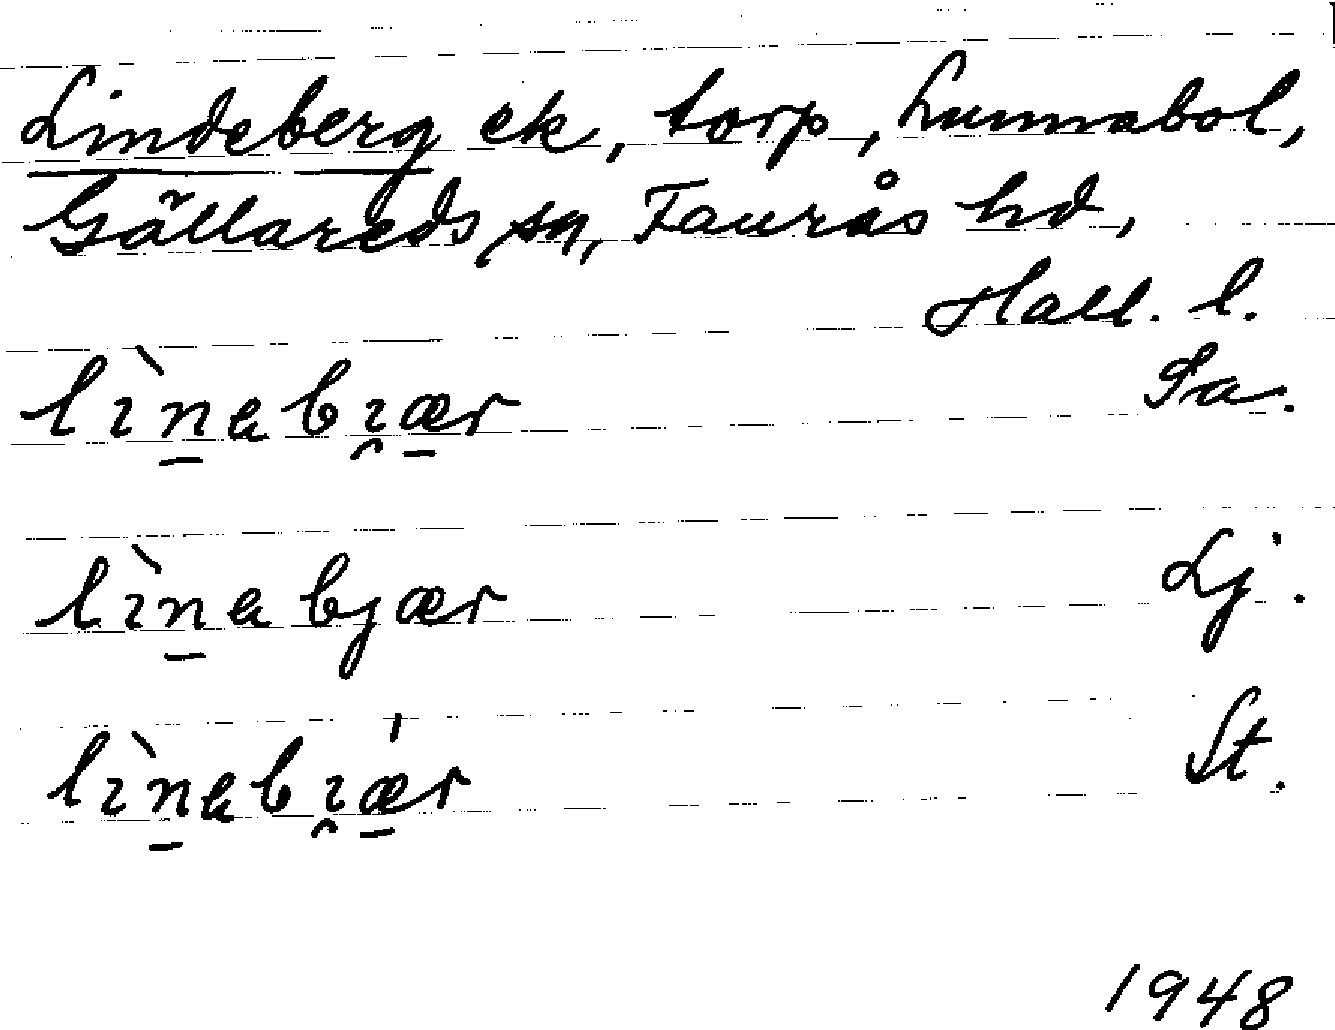 Lindeberg ek, torp, Lunnabol,
Gällareds sn, Faurås hd,
Hall. l.
lìn̲ebi̯æ̲r Sa.
lìn̲ebjær Lj.
lìn̲ebi̯ǽ̲r St.
1948